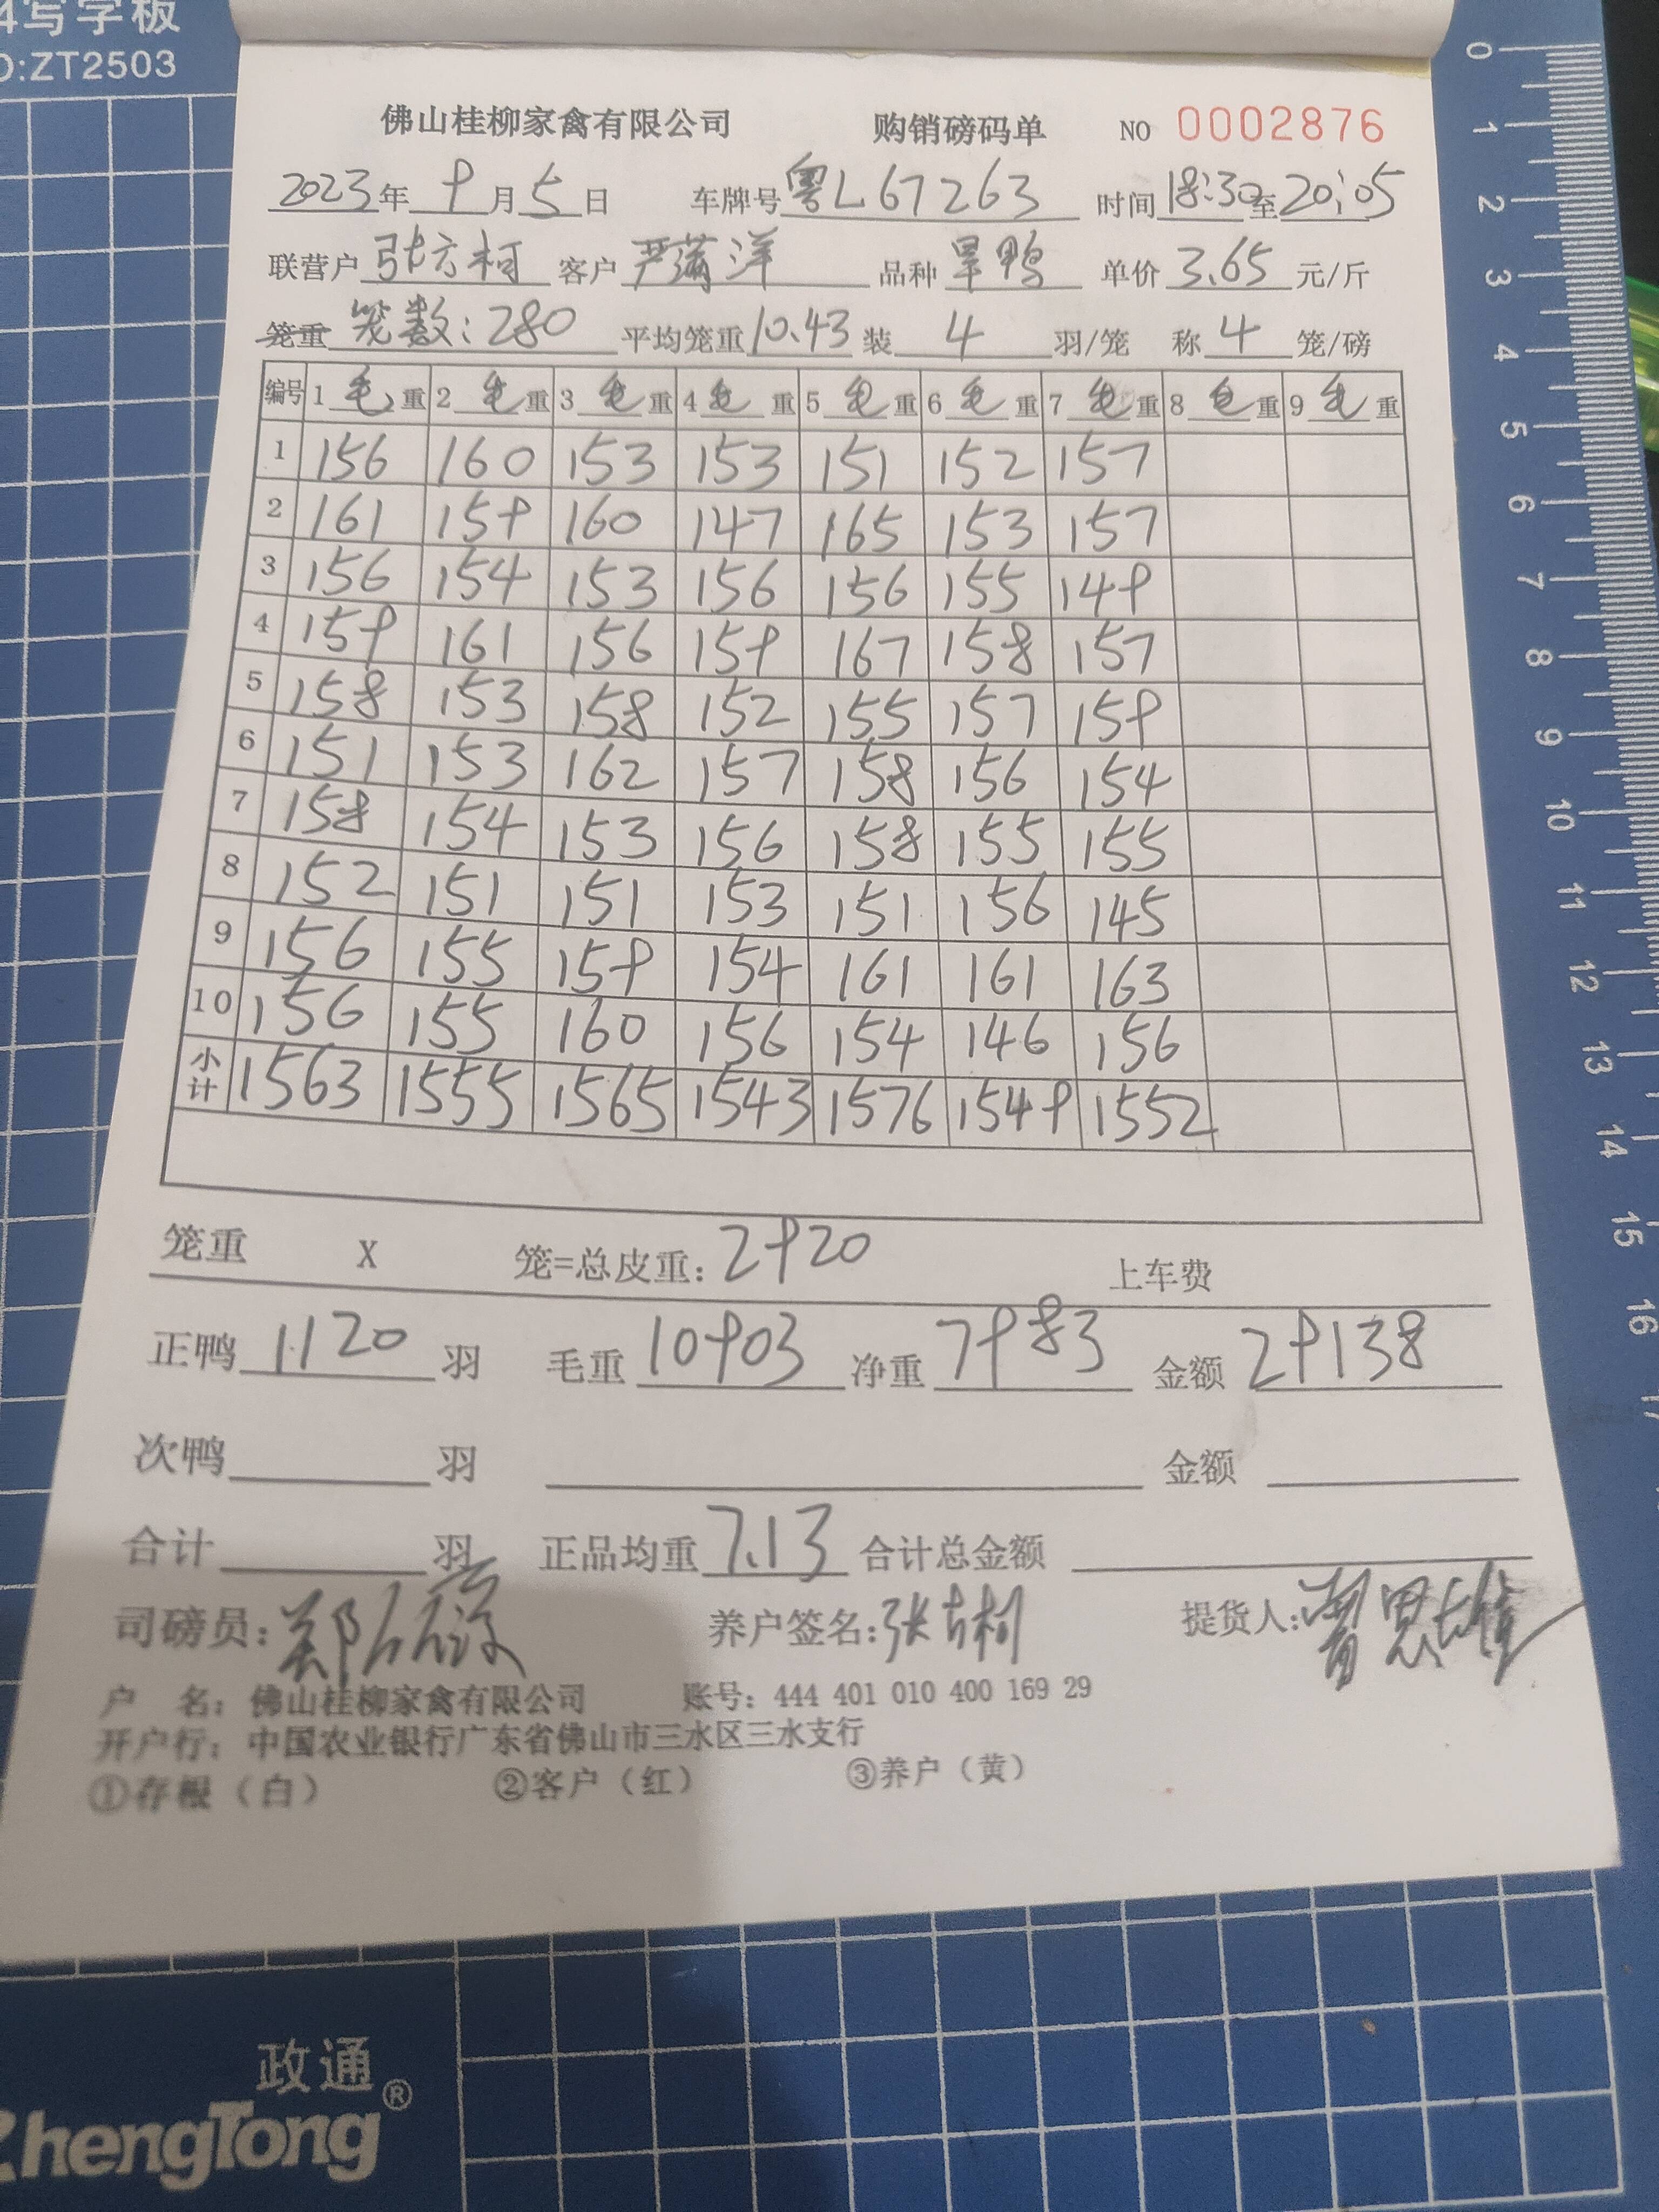 4写字板
O:ZT2503
佛山桂柳家禽有限公司 购销磅码单 NO 0002876
2023年 9月5日 车牌号 粤L67263 时间 18:30至20:05
联营户 张方柯 客户 严蒲洋 品种 旱鸭 单价 3.65 元/斤
笼重 笼数:280 平均笼重 10.43 装 4 羽/笼 称 4 笼/磅
编号 1 毛重 2 毛重 3 毛重 4 毛重 5 毛重 6 毛重 7 毛重 8 毛重 9 毛重
1 156 160 153 153 151 152 157
2 161 159 160 147 165 153 157
3 156 154 153 156 156 155 149
4 159 161 156 159 167 158 157
5 158 153 158 152 155 157 159
6 151 153 162 157 158 156 154
7 158 154 153 156 158 155 155
8 152 151 151 153 151 156 145
9 156 155 159 154 161 161 163
10 156 155 160 156 154 146 156
小计 1563 1555 1565 1543 1576 1549 1552
笼重 X 笼=总皮重: 2920 上车费
正鸭 1120 羽 毛重 10903 净重 7983 金额 29138
次鸭 羽 金额
合计 羽 正品均重 7.13 合计总金额
司磅员: 养户签名: 张方柯 提货人:
户 名: 佛山桂柳家禽有限公司 账号: 444 401 010 400 169 29
开户行: 中国农业银行广东省佛山市三水区三水支行
①存根（白） ②客户（红） ③养户（黄）
政通®
ZhengTong
0
1
2
3
4
5
6
7
8
9
10
11
12
13
14
15
16
17